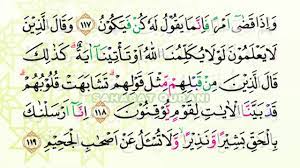 وَاِذَا قَضٰٓى اَمْرًا فَاِنَّمَا يَقُوْلُ لَهٗ كُنْ فَيَكُوْنُ ۝١١٧ وَقَالَ الَّذِيْنَ
لَا يَعْلَمُوْنَ لَوْلَا يُكَلِّمُنَا اللّٰهُ اَوْ تَأْتِيْنَآ اٰيَةٌ ۗ كَذٰلِكَ
قَالَ الَّذِيْنَ مِنْ قَبْلِهِمْ مِّثْلَ قَوْلِهِمْ ۘ تَشَابَهَتْ قُلُوْبُهُمْ ۗ
قَدْ بَيَّنَّا الْاٰيٰتِ لِقَوْمٍ يُّوْقِنُوْنَ ۝١١٨ اِنَّآ اَرْسَلْنٰكَ
بِالْحَقِّ بَشِيْرًا وَّنَذِيْرًا ۙ وَّلَا تُسْـَٔلُ عَنْ اَصْحٰبِ الْجَحِيْمِ ۝١١٩